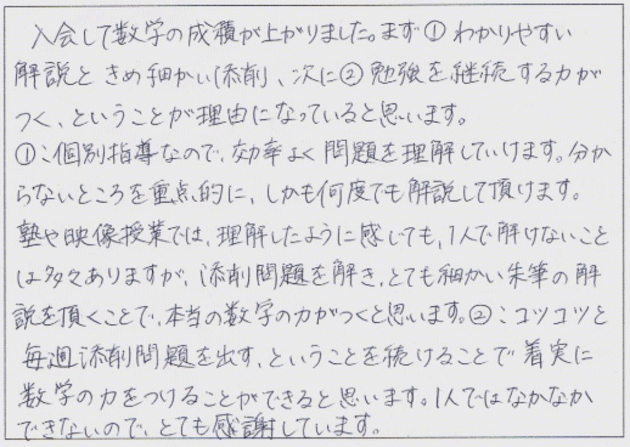 入会して数学の成積が上がりました。まず① わかりやすい
解説と きめ細かい(添削)、次に② 勉強を継続する力が
つく、ということが理由になっていると思います。
①:個別指導なので、効率よく問題を理解していけます。分か
らないところを重点的に、しかも何度でも解説して頂けます。
塾や映像授業では、理解したように感じても、1人で解けないこと
は多々ありますが、添削問題を解き、とても細かい朱筆の解
説を頂くことで、本当の数学の力がつくと思います。②:コツコツと
毎週添削問題を出す、ということを続けることで着実に
数学の力をつけることができると思います。1人ではなかなか
できないので、とても感謝しています。